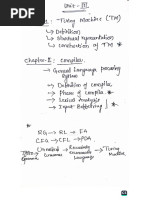 Unit - III
1 : Turing Machine (TM)
→ Definition
→ Standard representation
→ Construction of TM *
Chapter-II : Compiler
→ General Language processing
System
→ Definition of compiler
→ Phase of compiler *
→ Lexical Analysis
→ Input Buffering
RG → RL → FA
CFG → CFL → PDA
Grammar Grammar Language Turing
Machine